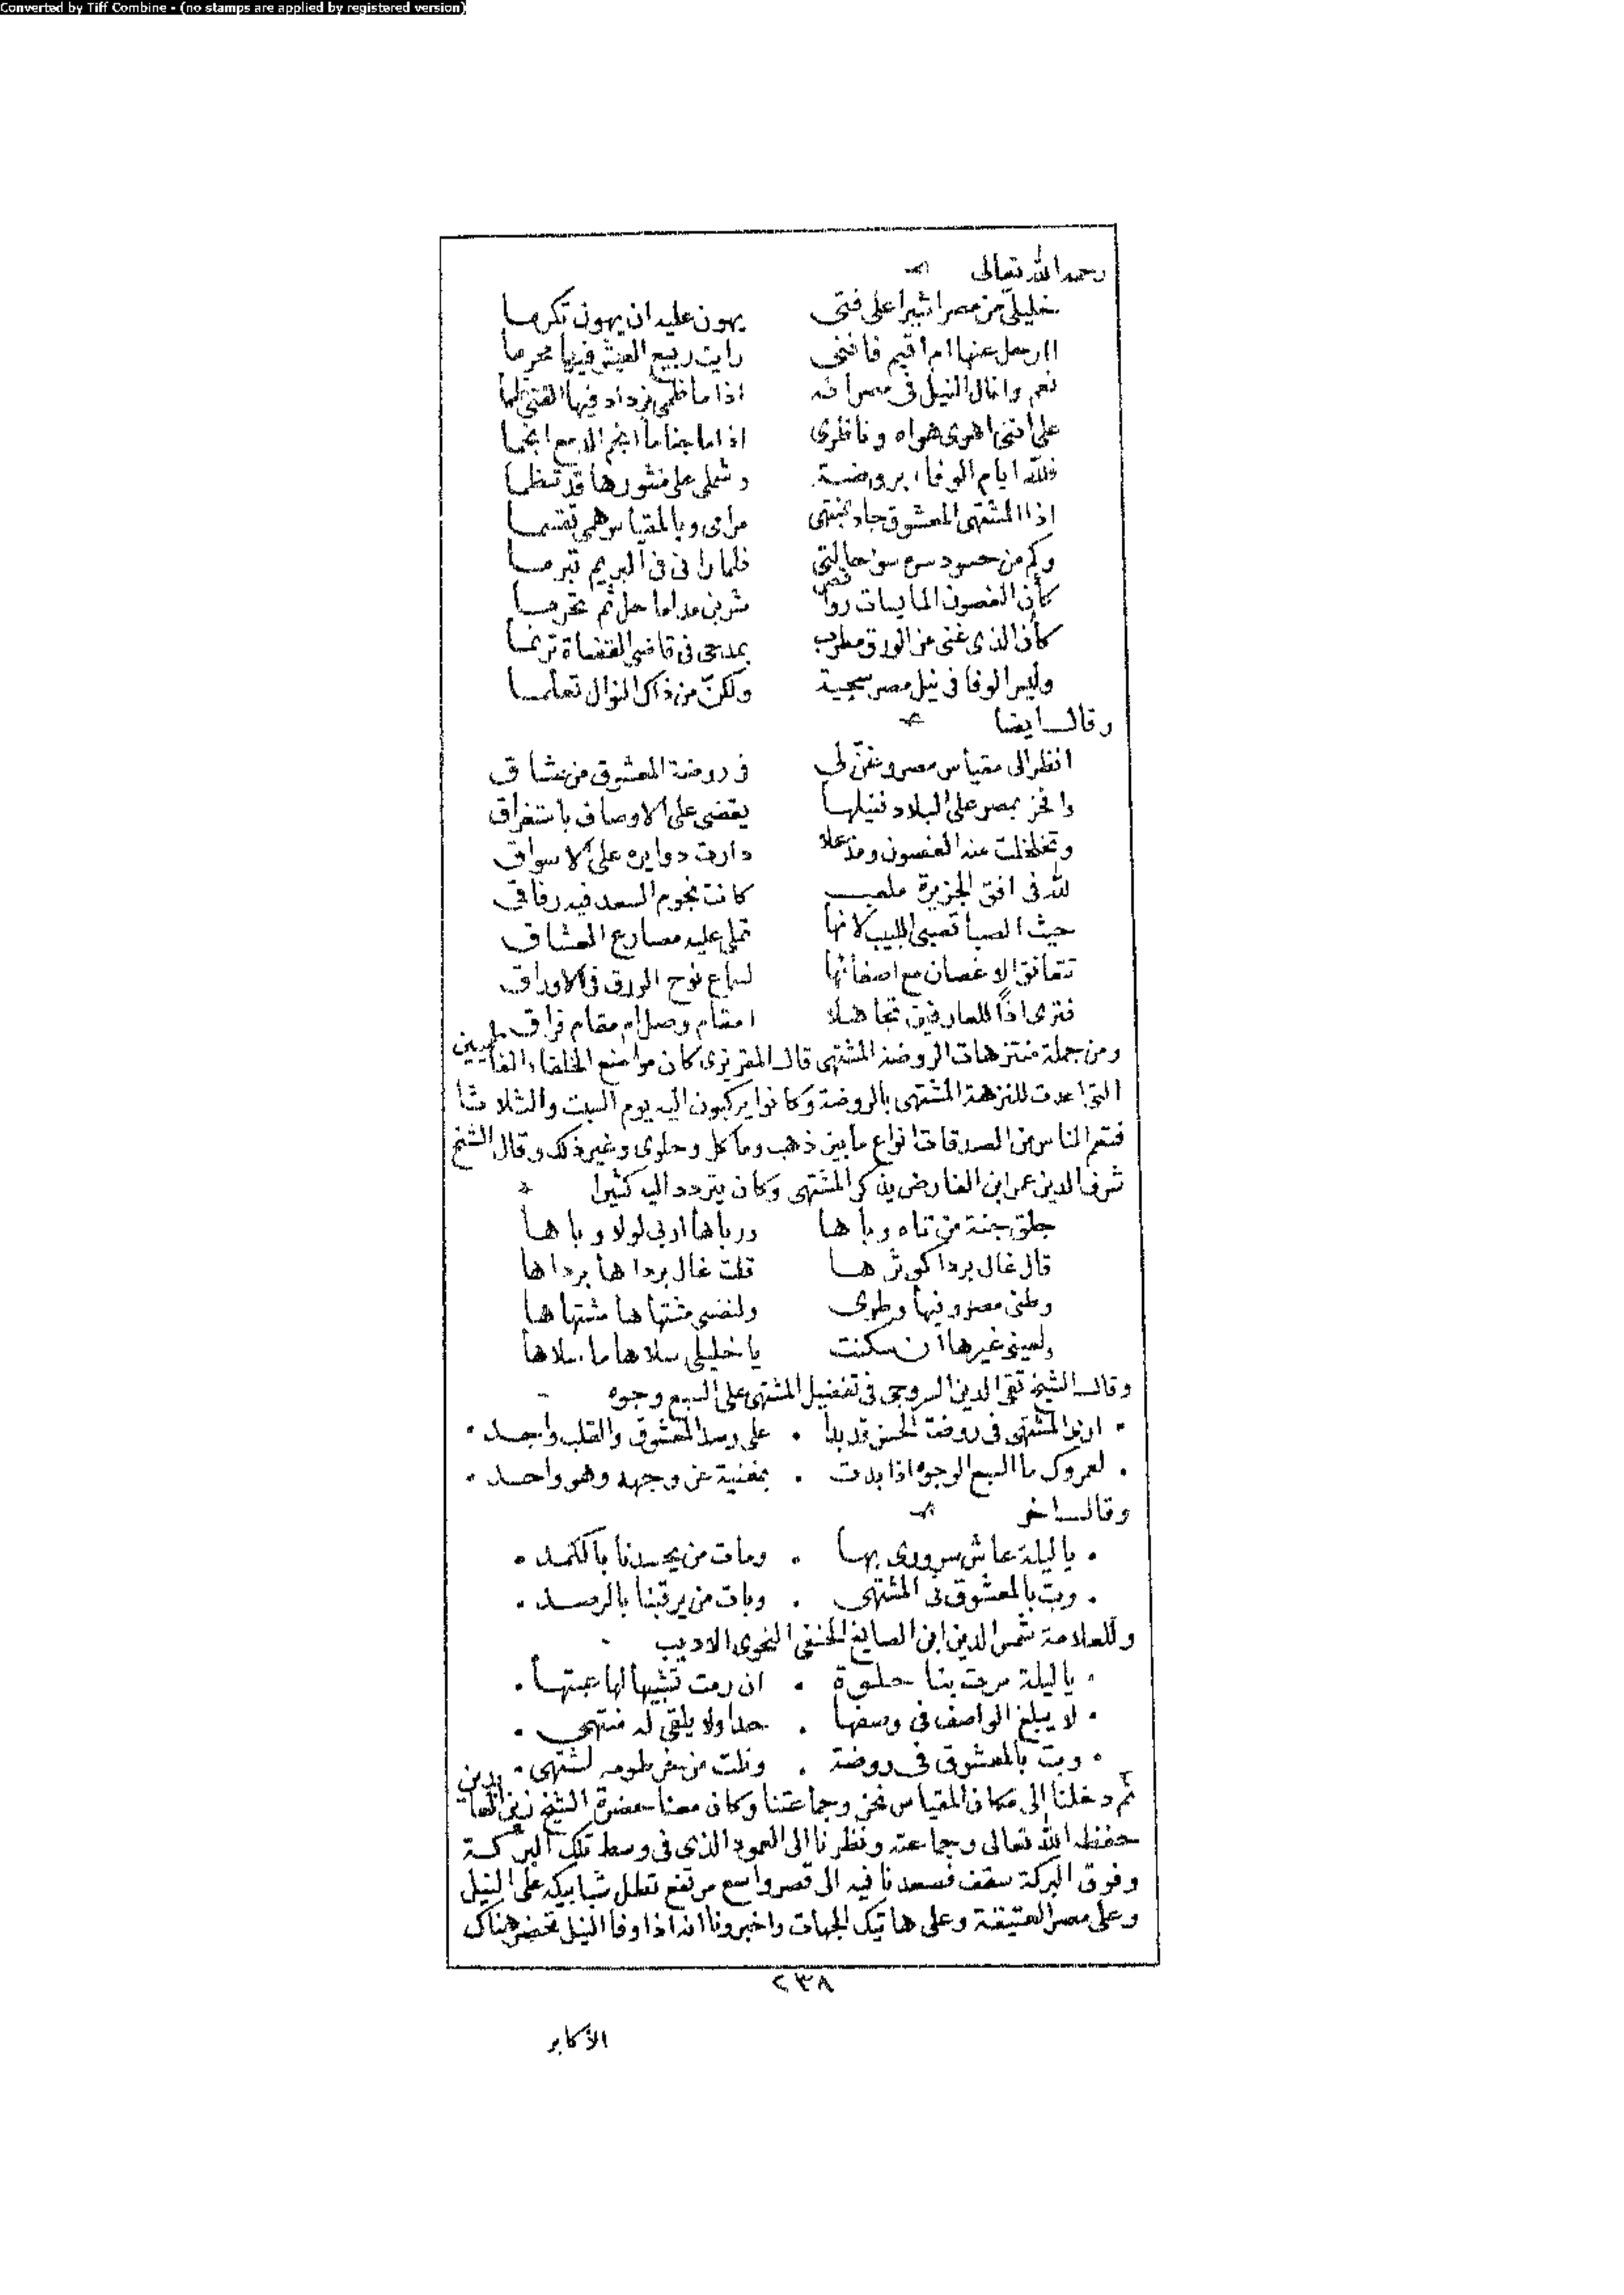 Converted by Tiff Combine - (no stamps are applied by registered version)
رحمه الله تعالى
خليليّ من مصر اشيرا على فتى يهون عليه ان يهون تكرما
اارحل عنها ام اقيم فاننى رايت ربيع العيش فيها محرما
نعم وانال النيل فى مصر انه اذا ما ظمى يزداد فيها الفتى ظما
على اننى اهوى هواه وناظرى اذا ما جنا ما انجم الدمع انجما
فلله ايام الوفاء بروضة وشملى على منثورها قد تنظما
اذا المشتهى المعشوق جاد بمنتهى مرامى وبالمقياس همى تقسما
وكم من حسود سره سوء حالتى فلما رانى فى البريم تبرما
كأن الغصون المايسات رواقص شربن مداما حل ثم تحرما
كأن الذى غنى من الورق مطرب بمدحى فى قاضى القضاة ترنما
وليس الوفا فى نيل مصر سجية ولكنّ من ذاك النوال تعلما
وقال ايضا
انظر الى مقياس مصر وغنّ لى فى روضة المعشوق من عشاق
وافخر بمصر على البلاد فنيلها يقضى على الاوصاف باستغراق
وتخلخلت منه الغصون ومذ علا دارت دوايره على الاسواق
لله فى افق الجزيرة ملعب كانت نجوم السعد فيه رفاقى
حيث الصبا تصبى اللبيب لانها تملى عليه مصارع العشاق
تتعانق الاغصان مع اصفائها لسماع نوح الورق فى الاوراق
فترى اذًا للعارفين تجاهلا امقام وصل ام مقام فراق
ومن جملة منتزهات الروضة المشتهى قال المقريزى كان مواضع الخلفاء الفاطميين
التى اعدت للنزهة المشتهى بالروضة وكانوا يركبون اليه يوم السبت والثلاثا
فتعم الناس من الصدقات انواع ما بين ذهب ومآكل وحلوى وغير ذلك وقال الشيخ
شرف الدين عمر ابن الفارض يذكر المشتهى وكان يتردد اليه كثيرا
جلق جنة من تاه وباها ورباها اربى لولا وباها
قال غال بردا كوثرها قلت غال برداها برداها
وطنى مصر وفيها وطرى ولنفسى مشتهاها مشتهاها
ولعينى غيرها ان سكنت يا خليلى سلاها ما سلاها
وقال الشيخ تقى الدين السروجى فى تفضيل المشتهى على السبع وجوه
ارى المشتهى فى روضة الحسن قد بدا على رصد المعشوق والقلب واجد
لعمرك ما السبع الوجوه اذا بدت بمغنية عن وجهه وهو واحد
وقال اخر
يا ليلة عاش سرورى بها ومات من يحسدنا بالكمد
وبت بالمعشوق فى المشتهى وبات من يرقبنا بالرصد
وللعلامة شمس الدين ابن الصايغ الحنفى النحوى الاديب
يا ليلة مرت بنا حلوة ان رمت تشبيها لها عبتها
لا يبلغ الواصف فى وصفها حدا ولا يلقى له منتهى
وبت بالمعشوق فى روضة ونلت من خرطومه لمشتهى
ثم دخلنا الى مكان المقياس نحن وجماعتنا وكان معنا حضرة الشيخ زين العابدين
حفظه الله تعالى وجماعته ونظرنا الى العمود الذى فى وسط تلك البركة
وفوق البركة سقف فصعدنا فيه الى قصر واسع مرتفع تطل شبابيكه على النيل
وعلى مصر العتيقة وعلى هاتيك الجهات واخبرونا انه اذا وفا النيل تحضر هناك
٢٣٨
الأكابر